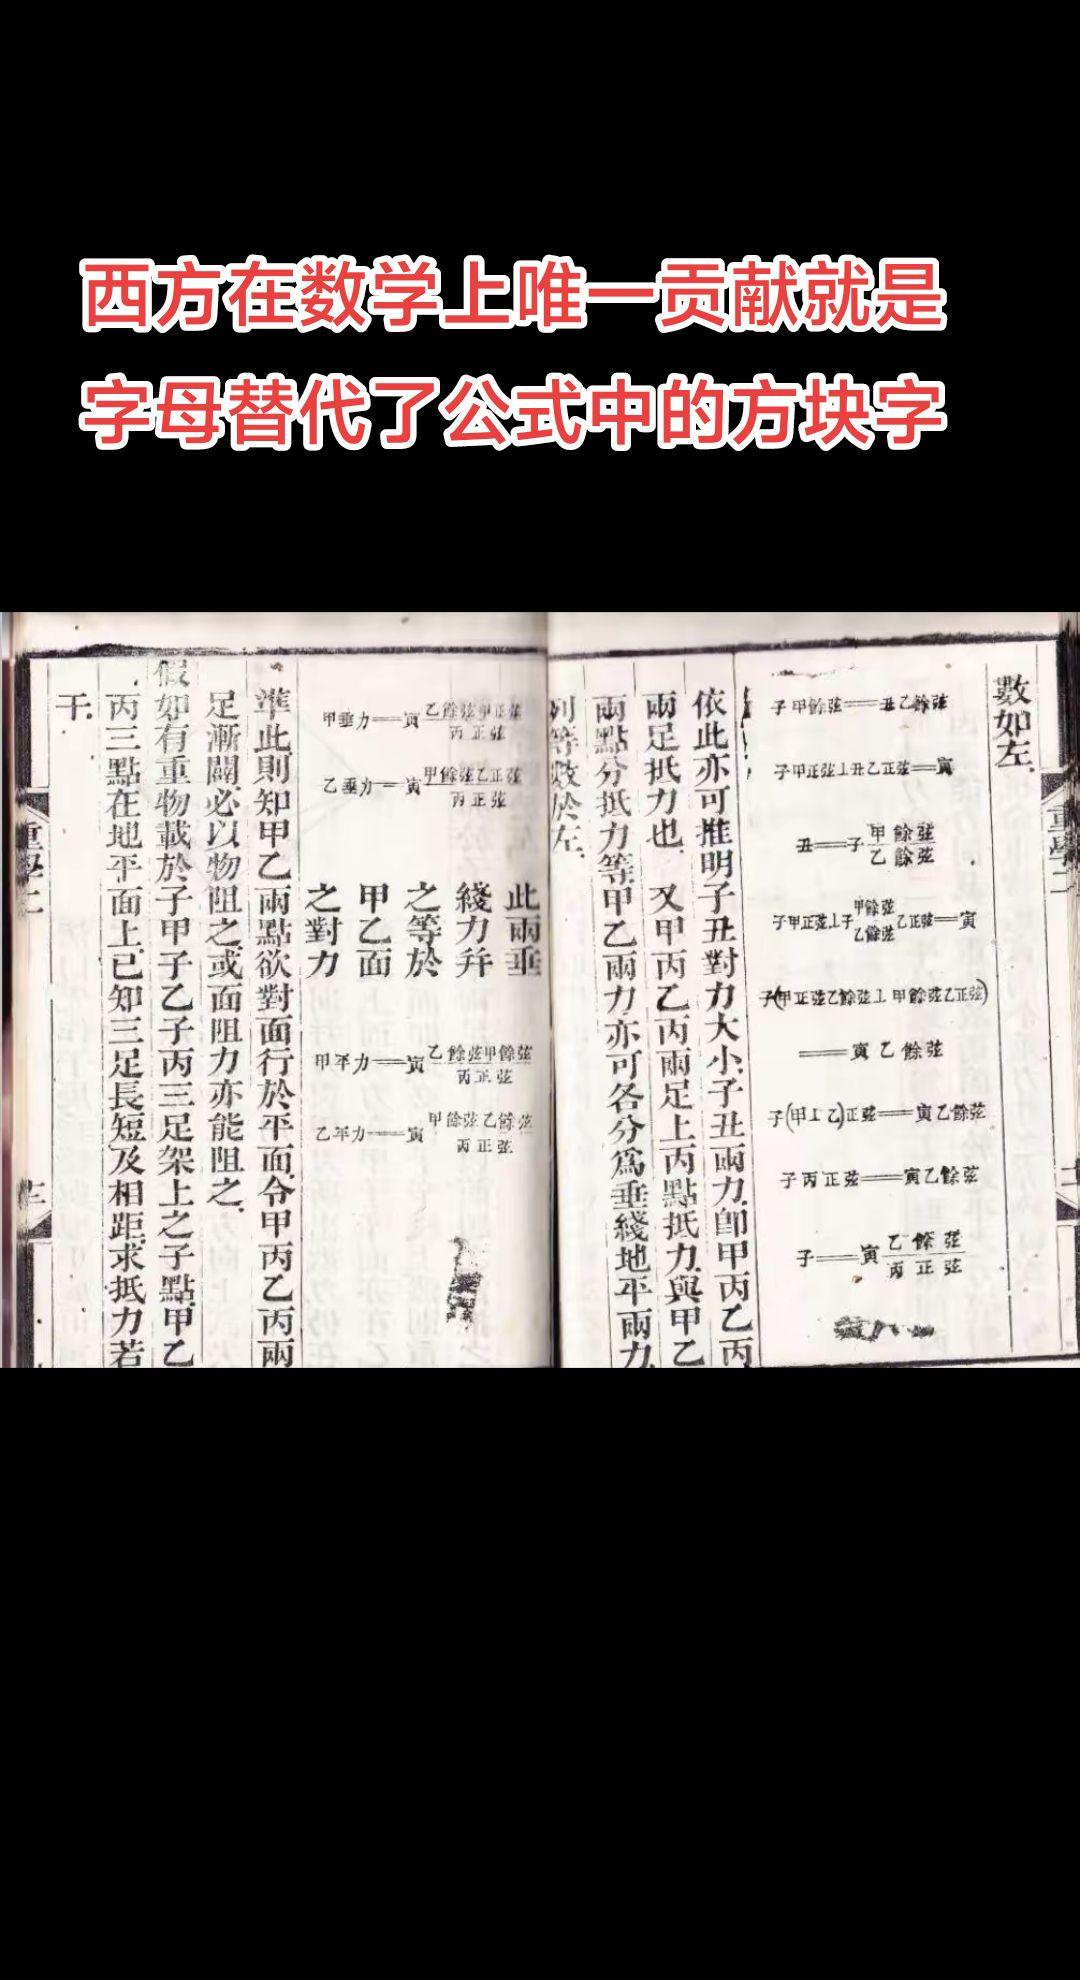 西方在数学上唯一贡献就是
字母替代了公式中的方块字
數如左
子甲餘弦══丑乙餘弦
子甲正弦⊥丑乙正弦══寅
丑══子甲餘弦/乙餘弦
子甲正弦⊥子甲餘弦/乙餘弦乙正弦══寅
子(甲正弦乙餘弦⊥甲餘弦乙正弦)
══寅乙餘弦
子(甲⊥乙)正弦══寅乙餘弦
子丙正弦══寅乙餘弦
子══寅乙餘弦/丙正弦
依此亦可推明子丑對力大小子丑兩力卽甲丙乙丙
兩足抵力也 又甲丙乙丙兩足上丙點抵力與甲乙
兩點分抵力等甲乙兩力亦可各分爲垂綫地平兩力
列等數於左
甲垂力══寅乙餘弦甲正弦/丙正弦
乙垂力══寅甲餘弦乙正弦/丙正弦
此兩垂
綫力幷
之等於
甲乙面
之對力
甲平力══寅乙餘弦甲餘弦/丙正弦
乙平力══寅甲餘弦乙餘弦/丙正弦
準此則知甲乙兩點欲對面行於平面令甲丙乙丙兩
足漸開必以物阻之或面阻力亦能阻之
假如有重物載於子甲子乙子丙三足架上之子點甲乙
丙三點在地平面上已知三足長短及相距求抵力若
干
重學二